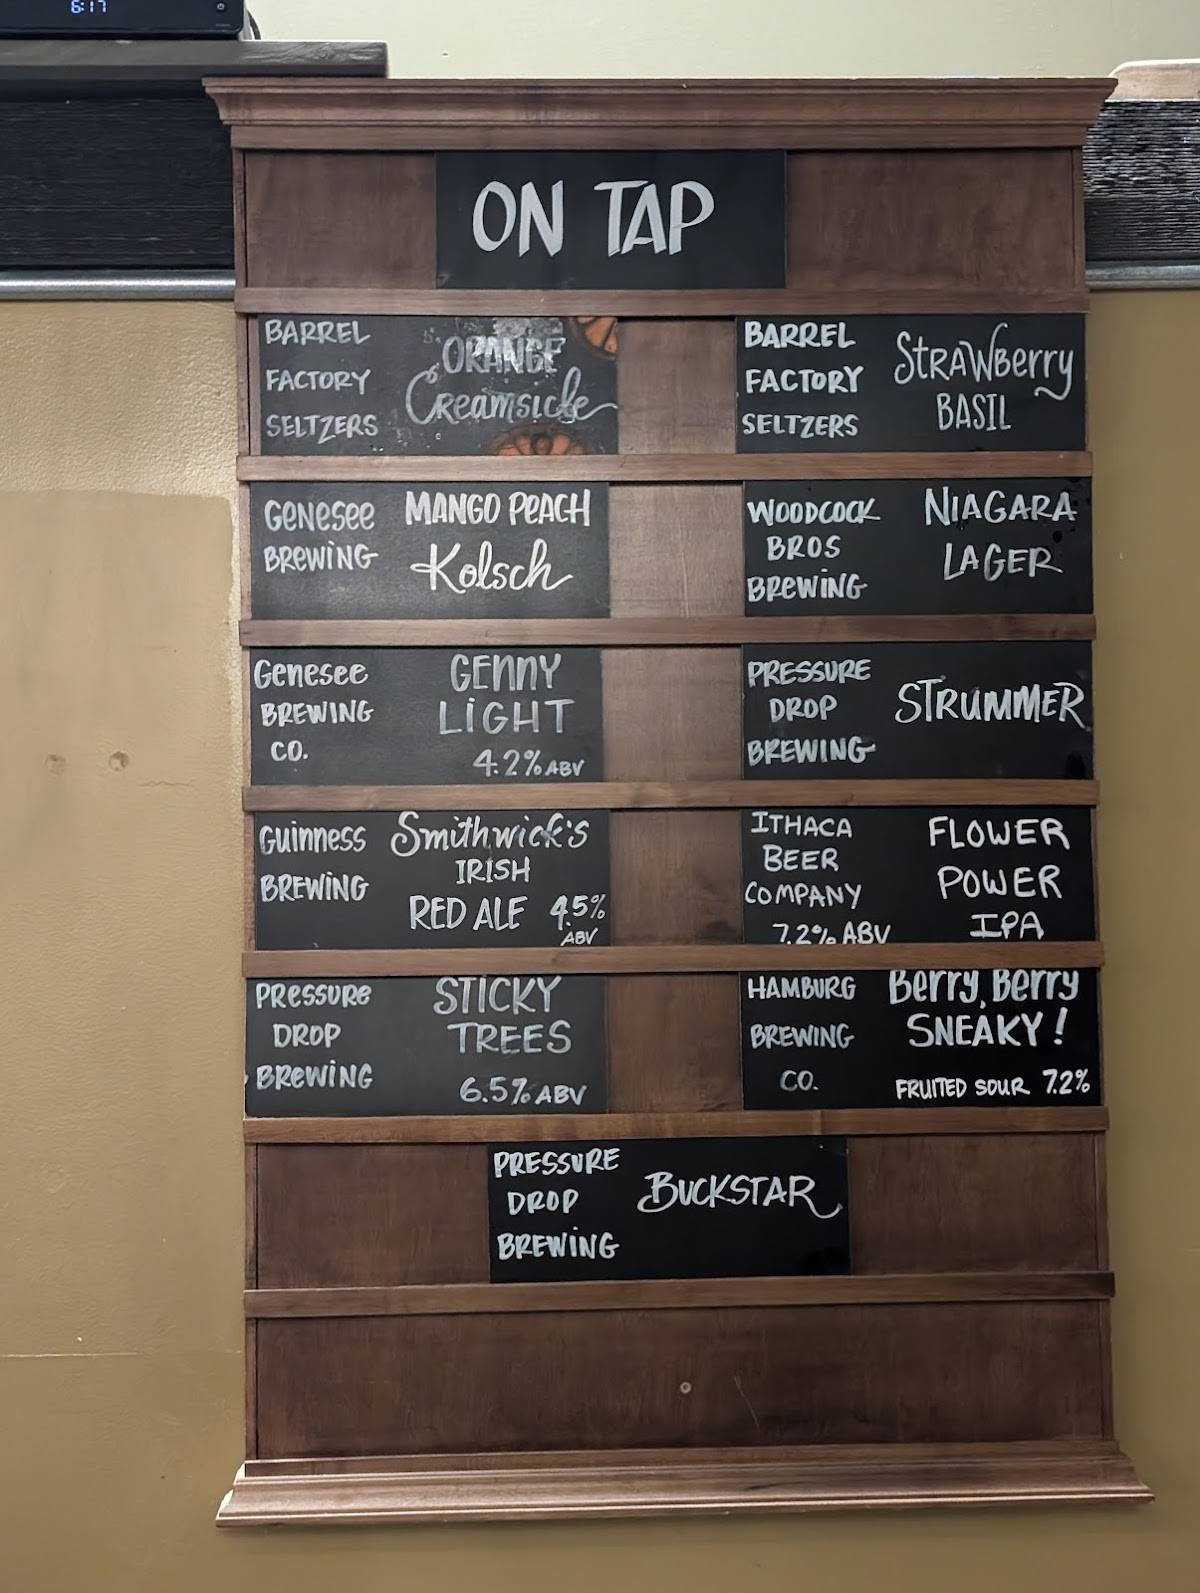 6:17
ON TAP
BARREL
FACTORY
SELTZERS
ORANGE
Creamsicle
BARREL
FACTORY
SELTZERS
STRAWberry
BASIL
GENESEE
BREWING
MANGO PEACH
Kolsch
WOODCOCK
BROS
BREWING
NIAGARA
LAGER
Genesee
BREWING
CO.
GENNY
LIGHT
4.2% ABV
PRESSURE
DROP
BREWING
STRUMMER
Guinness
BREWING
Smithwick's
IRISH
RED ALE 4.5%
ABV
ITHACA
BEER
COMPANY
7.2% ABV
FLOWER
POWER
IPA
PRESSURE
DROP
BREWING
STICKY
TREES
6.5% ABV
HAMBURG
BREWING
CO.
Berry, Berry
SNEAKY!
FRUITED SOUR 7.2%
PRESSURE
DROP
BREWING
BUCKSTAR